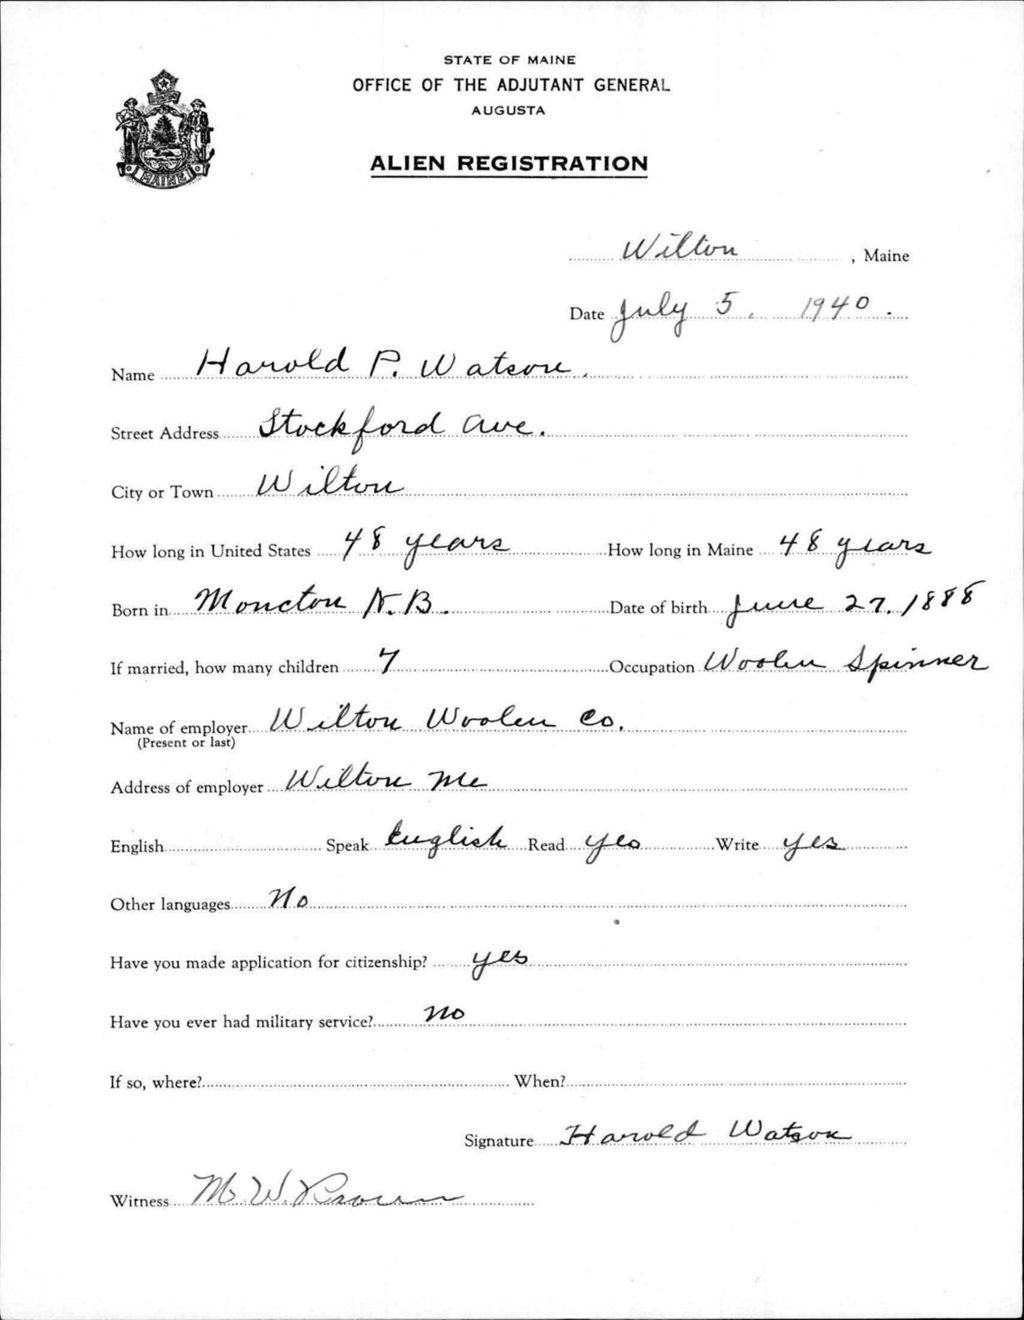 STATE OF MAINE
OFFICE OF THE ADJUTANT GENERAL
AUGUSTA
MAINE
ALIEN REGISTRATION
Wilton, Maine
Date July 5, 1940.
Name Harold P. Watson.
Street Address Stockford Ave.
City or Town Wilton
How long in United States 48 years How long in Maine 48 years
Born in Moncton N.B. Date of birth June 27, 1888
If married, how many children 7 Occupation Woolen Spinner
Name of employer Wilton Woolen Co.
(Present or last)
Address of employer Wilton Me
English Speak English Read yes Write yes
Other languages No
Have you made application for citizenship? yes
Have you ever had military service? no
If so, where? When?
Signature Harold Watson
Witness M. W. Brown